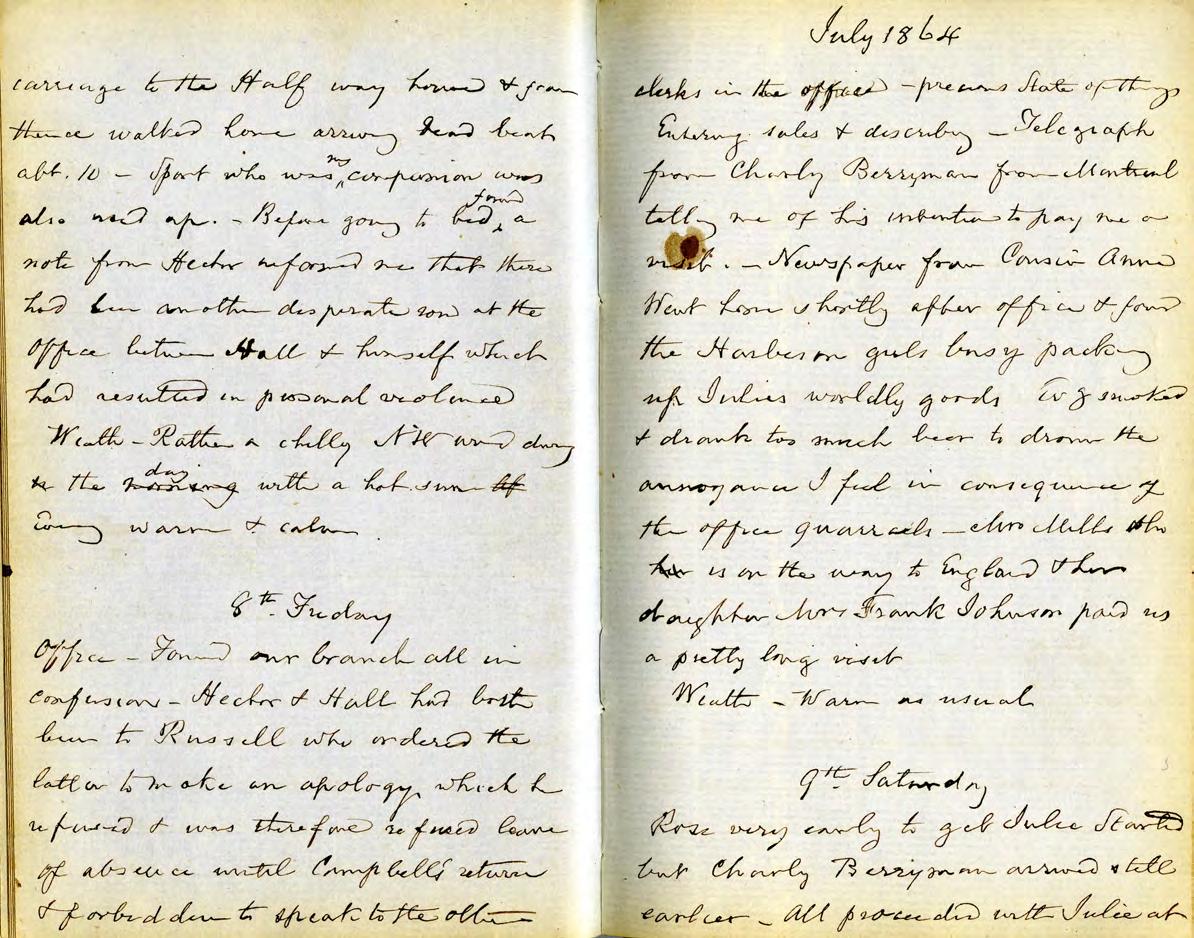 carriage to the Half way house & from
thence walked home arriving dead beat
abt. 10 – Sport who was my companion was
also used up. – Before going to bed, found a
note from Hector informed me that there
had been another desperate row at the
office between Hall & himself which
had resulted in personal violence
Weath – Rather a chilly NW wind during
the morning day with a hot sun
Eveng warm & calm.
8th Friday
Office – Found our branch all in
confusion – Hector & Hall had both
been to Russell who ordered the
latter to make an apology, which he
refused & was therefore refused leave
of absence until Campbell's return
& forbidden to speak to the other
July 1864
clerks in the office – precious State of things
Entering sales & describg – Telegraph
from Charly Berryman from Montreal
tellg me of his intention to pay me a
visit. – Newspaper from Cousin Anne
Went home shortly after office & found
the Harbeson girls busy packing
up Julies worldly goods Evg smoked
& drank too much beer to drown the
annoyance I feel in consequence of
the office quarrels – Mrs Mills who
is on the way to England & her
daughter Mrs Frank Johnson paid us
a pretty long visit
Weath – Warm as usual
9th Saturday
Rose very early to get Julie Started
but Charly Berryman arrived still
earlier – All proceeded with Julie at